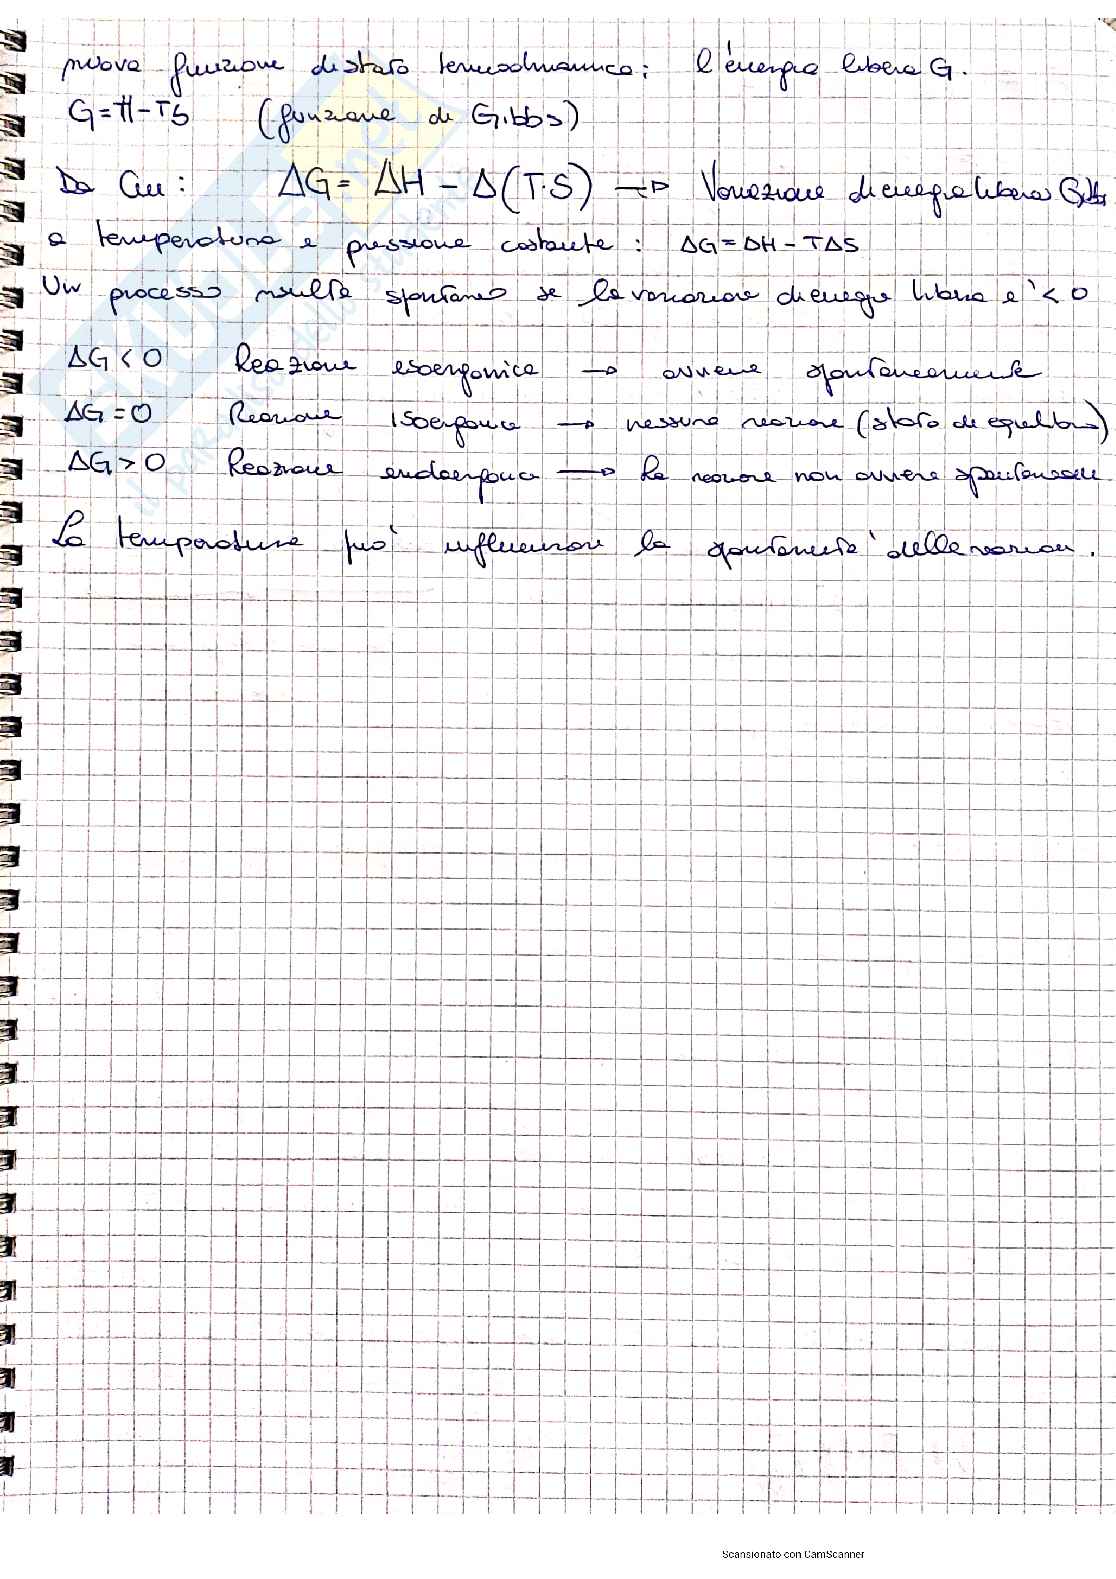 nuova funzione di stato termodinamica: l'energia libera G.
G=H-TS (funzione di Gibbs)
Da cui: ΔG= ΔH - Δ(T·S) → Variazione di energia libera Gibbs
a temperatura e pressione costante: ΔG=ΔH-TΔS
Un processo risulta spontaneo se la variazione di energia libera e' <0
ΔG<0 Reazione esoergonica → avviene spontaneamente
ΔG=0 Reazione isoergonica → nessuna reazione (stato di equilibrio)
ΔG>0 Reazione endoergonica → La reazione non avviene spontaneamente
La temperatura può influenzare la spontaneità delle reazioni.
SKUOLA.net
il paradiso dello studente
Scansionato con CamScanner